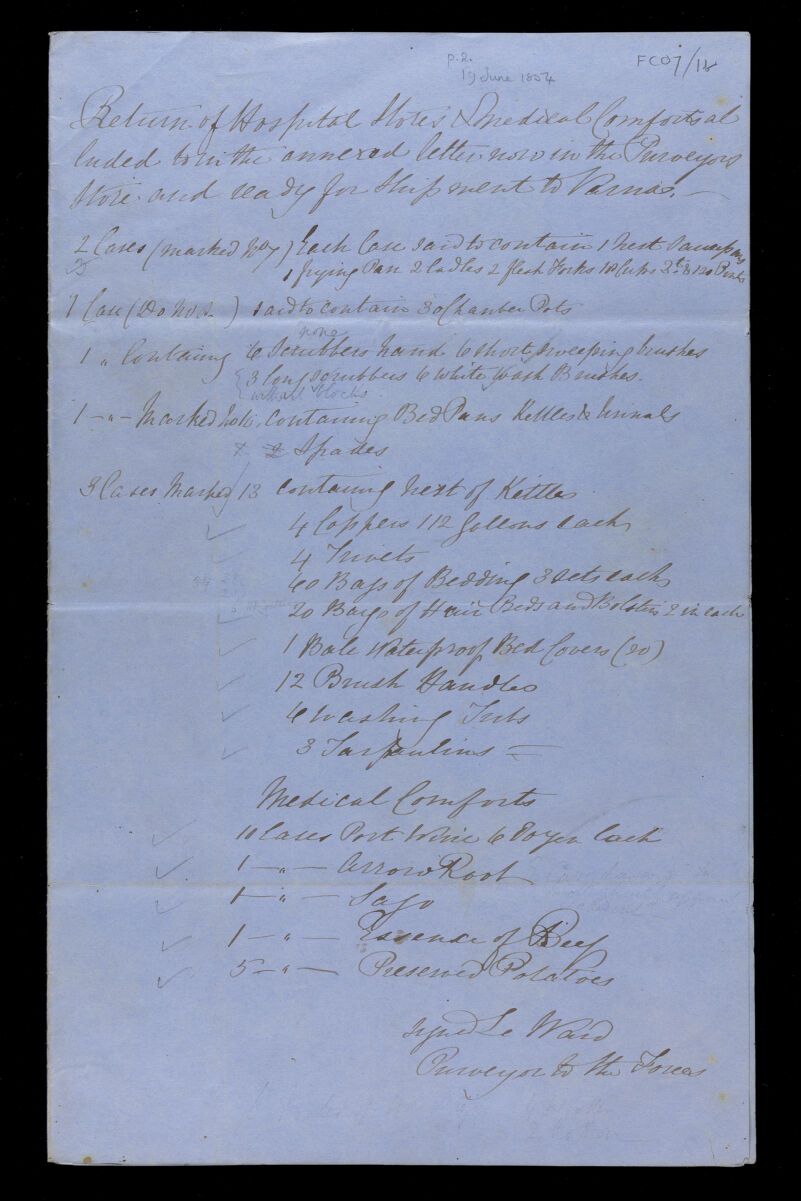 p.2.
FC07/18
19 June 1854
Return of Hospital Stores & Medical Comforts al
luded to in the annexed letter now in the Purveyors
Store and ready for Shipment to Varna.
2 Cases (marked No 7) Each Case said to contain 1 nest Saucepans
1 frying Pan 2 Ladles 2 flesh Forks 18 Cups 120 Pints
1 Case (Do No 2) said to contain 30 Chamber Pots
none
1 " Containing 6 Scrubbers hand 6 short sweeping brushes
3 long scrubbers 6 White Wash Brushes.
without blocks.
1 - " - Marked containing Bed Pans Kettles & Urinals
x 2 Spades
3 Cases Marked 13 containing nest of Kettles
4 Coppers 112 Gallons each
4 Trivets
60 Bags of Bedding 3 sets each
20 Bags of Hair Beds and Bolsters 2 in each
1 Bale Waterproof Bed Covers (20)
12 Brush Handles
6 Washing Tubs
3 Tarpaulins
Medical Comforts
10 Cases Port Wine 6 Dozen Each
1 - " - Arrow Root
1 - " - Sago
1 - " - Essence of Beef
5 - " - Preserved Potatoes
signed Ward
Purveyor to the Forces